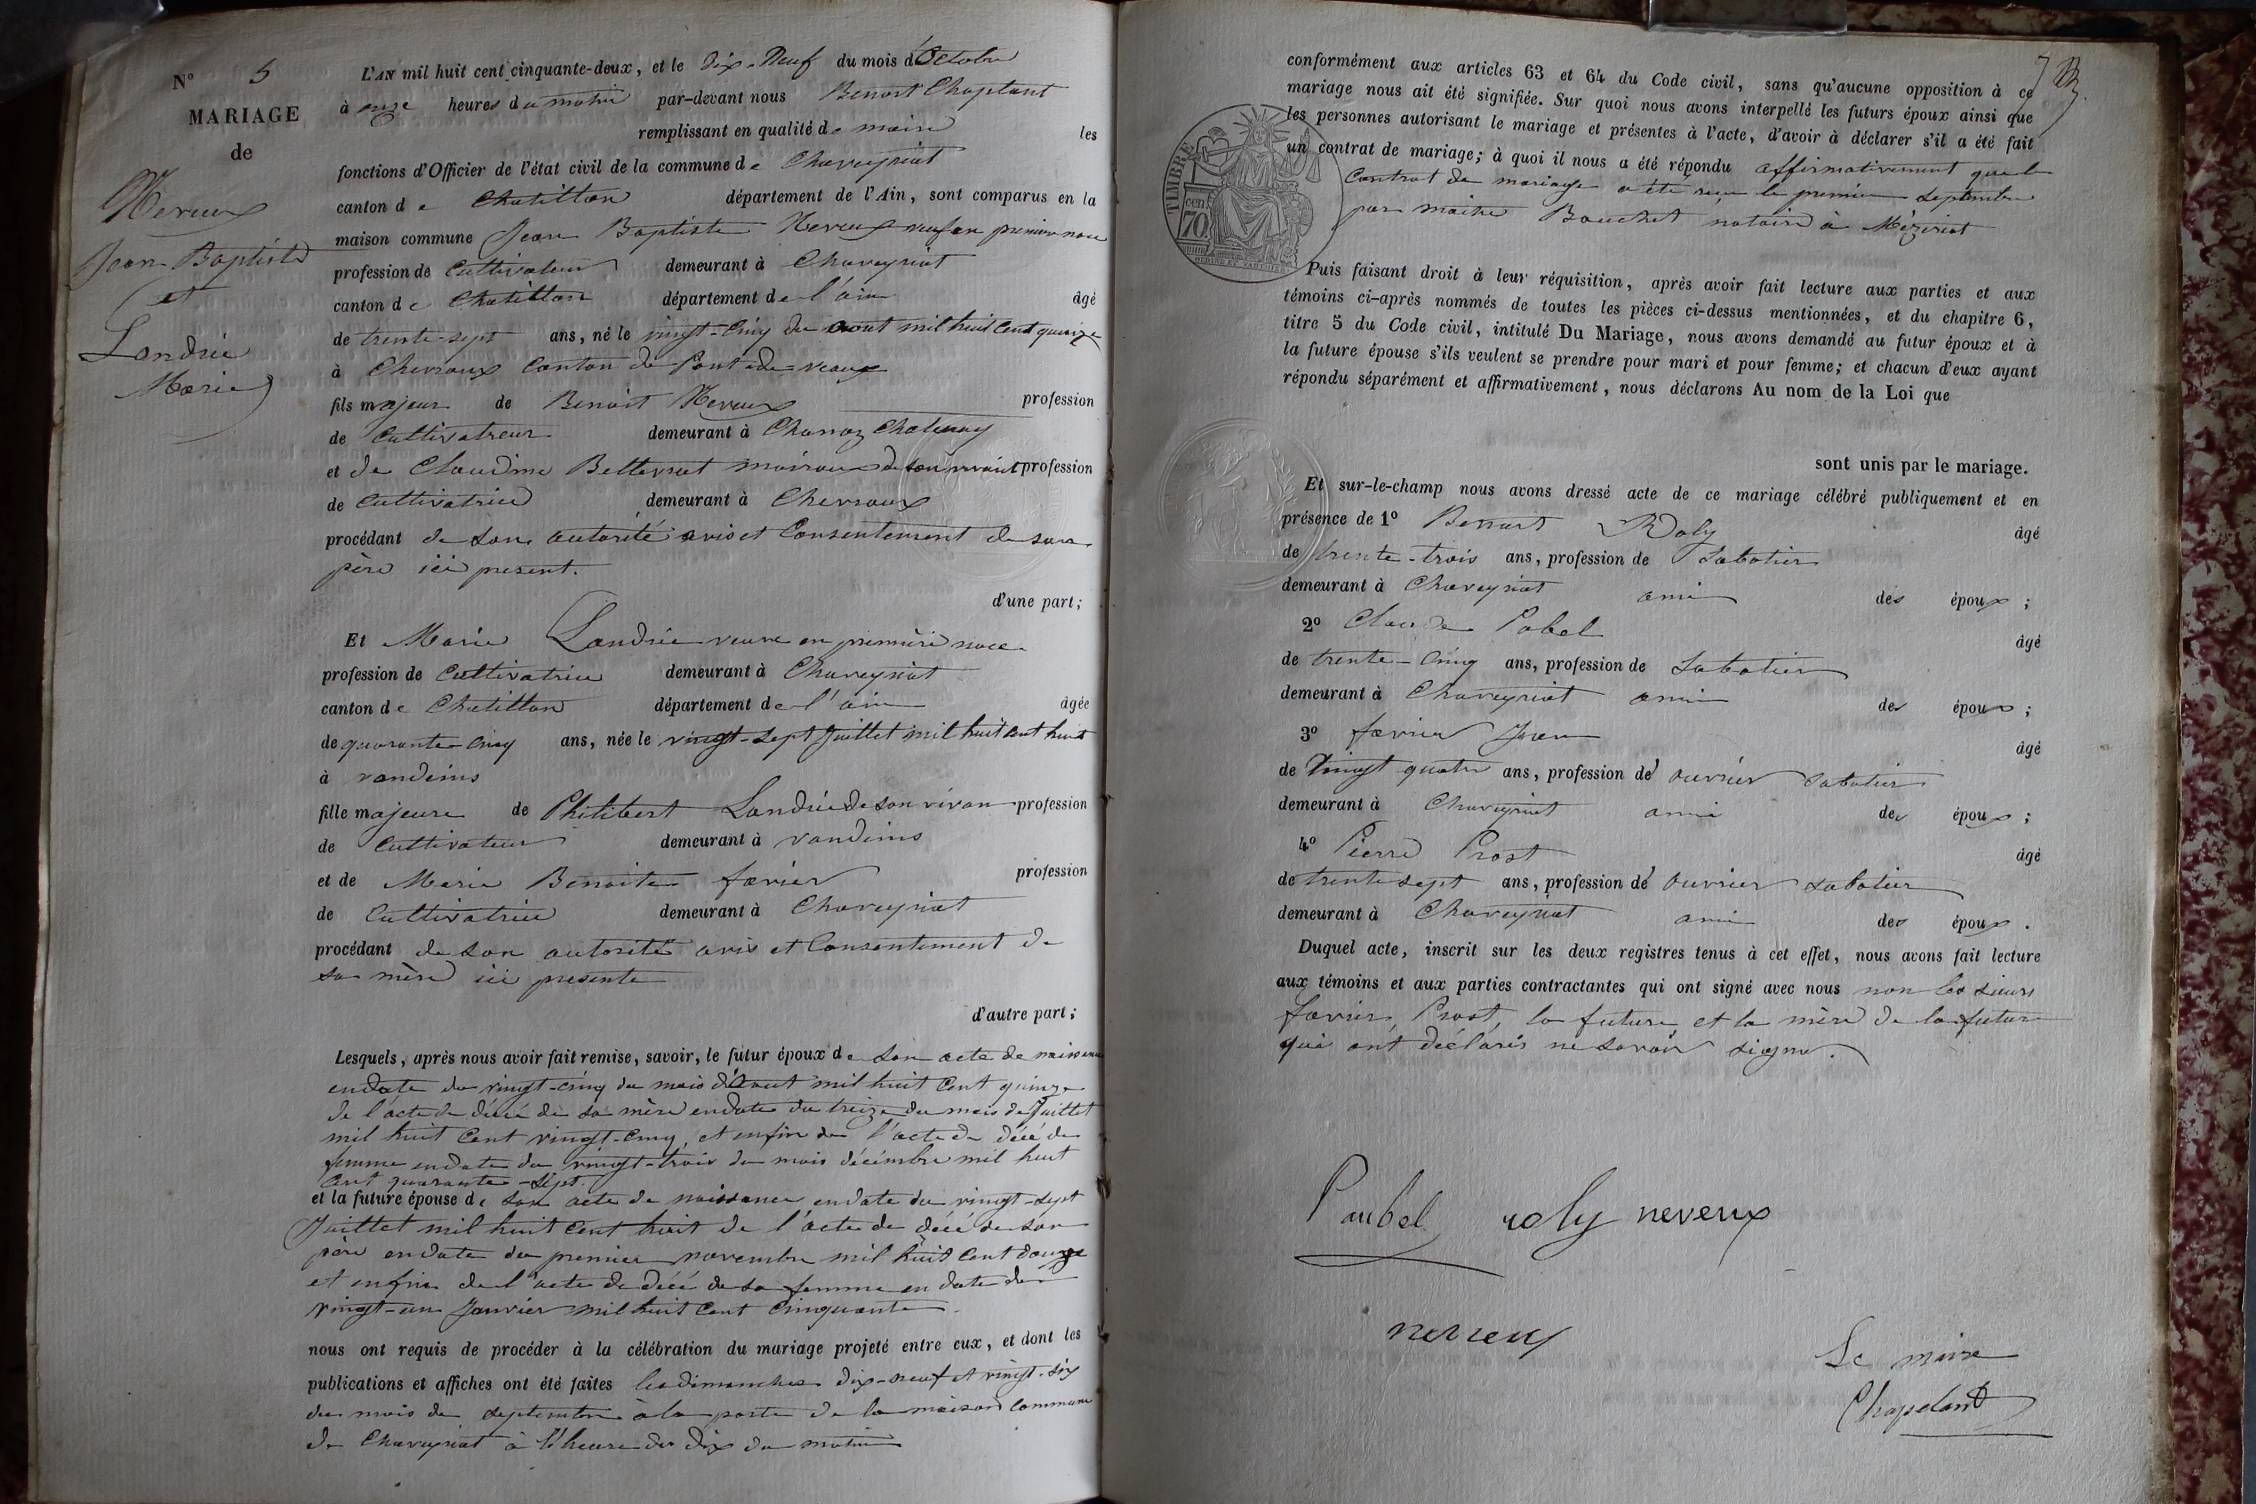 N° 5
MARIAGE
de
Neveux
Jean Baptiste
et
Landrie
Marie
L'AN mil huit cent cinquante-deux, et le dix-Neuf du mois d'Octobre
à onze heures du matin par-devant nous Benoit Chaplant
remplissant en qualité de maire les
fonctions d'Officier de l'état civil de la commune de Chaveyriat
canton de Chatillon département de l'Ain, sont comparus en la
maison commune Jean Baptiste Neveux veuf en premier noce
profession de Cultivateur demeurant à Chaveyriat
canton de Chatillon département de l'ain âgé
de trente-sept ans, né le vingt-Cinq du aout mil huit Cent quinze
à Chevroux Canton de Pont-de-veaux
fils majeur de Benoit Neveux profession
de Cultivatreur demeurant à Chanoz Chatenay
et de Claudine Betteraat de son vivant profession
de Cultivatrice demeurant à Chevroux
procédant de son autorité avis et Consentement de son
père ici present.
d'une part;
Et Marie Landrie veuve en premiere noce
profession de Cultivatrice demeurant à Chaveyriat
canton de Chatillon département de l'ain âgée
de quarante-Cinq ans, née le vingt-sept Juillet mil huit cent huit
à vandeins
fille majeure de Philibert Landrie de son vivan profession
de Cultivateur demeurant à vandeins
et de Marie Benoite favier profession
de Cultivatrice demeurant à Chaveyriat
procédant de son autorité avis et Consentement de
sa mère ici presente
d'autre part;
Lesquels, après nous avoir fait remise, savoir, le futur époux de son acte de naissance
en date du vingt-cinq du mois d'Aout mil huit Cent quinze
de l'acte de décé de sa mère en date du treize du mois de Juillet
mil huit Cent vingt-Cinq, et enfin de l'acte de décé de
femme en date du vingt-trois du mois décémbre mil huit
Cent quarante-sept.
et la future épouse de son acte de naissance en date du vingt-sept
Juillet mil huit Cent huit de l'acte de décé de son
père en date du premier novembre mil huit Cent douze
et enfin de l'acte de décé de sa femme en date du
vingt-un Janvier mil huit Cent Cinquante
nous ont requis de procéder à la célébration du mariage projeté entre eux, et dont les
publications et affiches ont été faites les dimanches dix-neuf et vingt-six
du mois de septembre à la porte de la maison Commune
de Chaveyriat à l'heure de dix du matin
7
conformément aux articles 63 et 64 du Code civil, sans qu'aucune opposition à ce
mariage nous ait été signifiée. Sur quoi nous avons interpellé les futurs époux ainsi que
les personnes autorisant le mariage et présentes à l'acte, d'avoir à déclarer s'il a été fait
un contrat de mariage; à quoi il nous a été répondu affirmativement que le
Contrat de mariage a été reçu le premier septembre
par maitre Bouchet notaire à Mézériat
TIMBRE
70 cen
Puis faisant droit à leur réquisition, après avoir fait lecture aux parties et aux
témoins ci-après nommés de toutes les pièces ci-dessus mentionnées, et du chapitre 6,
titre 5 du Code civil, intitulé Du Mariage, nous avons demandé au futur époux et à
la future épouse s'ils veulent se prendre pour mari et pour femme; et chacun d'eux ayant
répondu séparément et affirmativement, nous déclarons Au nom de la Loi que
sont unis par le mariage.
Et sur-le-champ nous avons dressé acte de ce mariage célébré publiquement et en
présence de 1° Benoit Roly âgé
de trente-trois ans, profession de Sabotier
demeurant à Chaveyriat ami des époux;
2° Claude Pobel âgé
de trente-Cinq ans, profession de Sabotier
demeurant à Chaveyriat ami des époux;
3° favier Jean âgé
de Vingt quatre ans, profession de ouvrier Sabotier
demeurant à Chaveyriat ami des époux;
4° Pierre Prost âgé
de trente sept ans, profession de ouvrier Sabotier
demeurant à Chaveyriat ami des époux.
Duquel acte, inscrit sur les deux registres tenus à cet effet, nous avons fait lecture
aux témoins et aux parties contractantes qui ont signé avec nous non les sieurs
favier, Prost, la future et la mère de la future
qui ont déclarés ne savoir signer.
Paubel roly neveux
neveux
Le maire
Chapelant